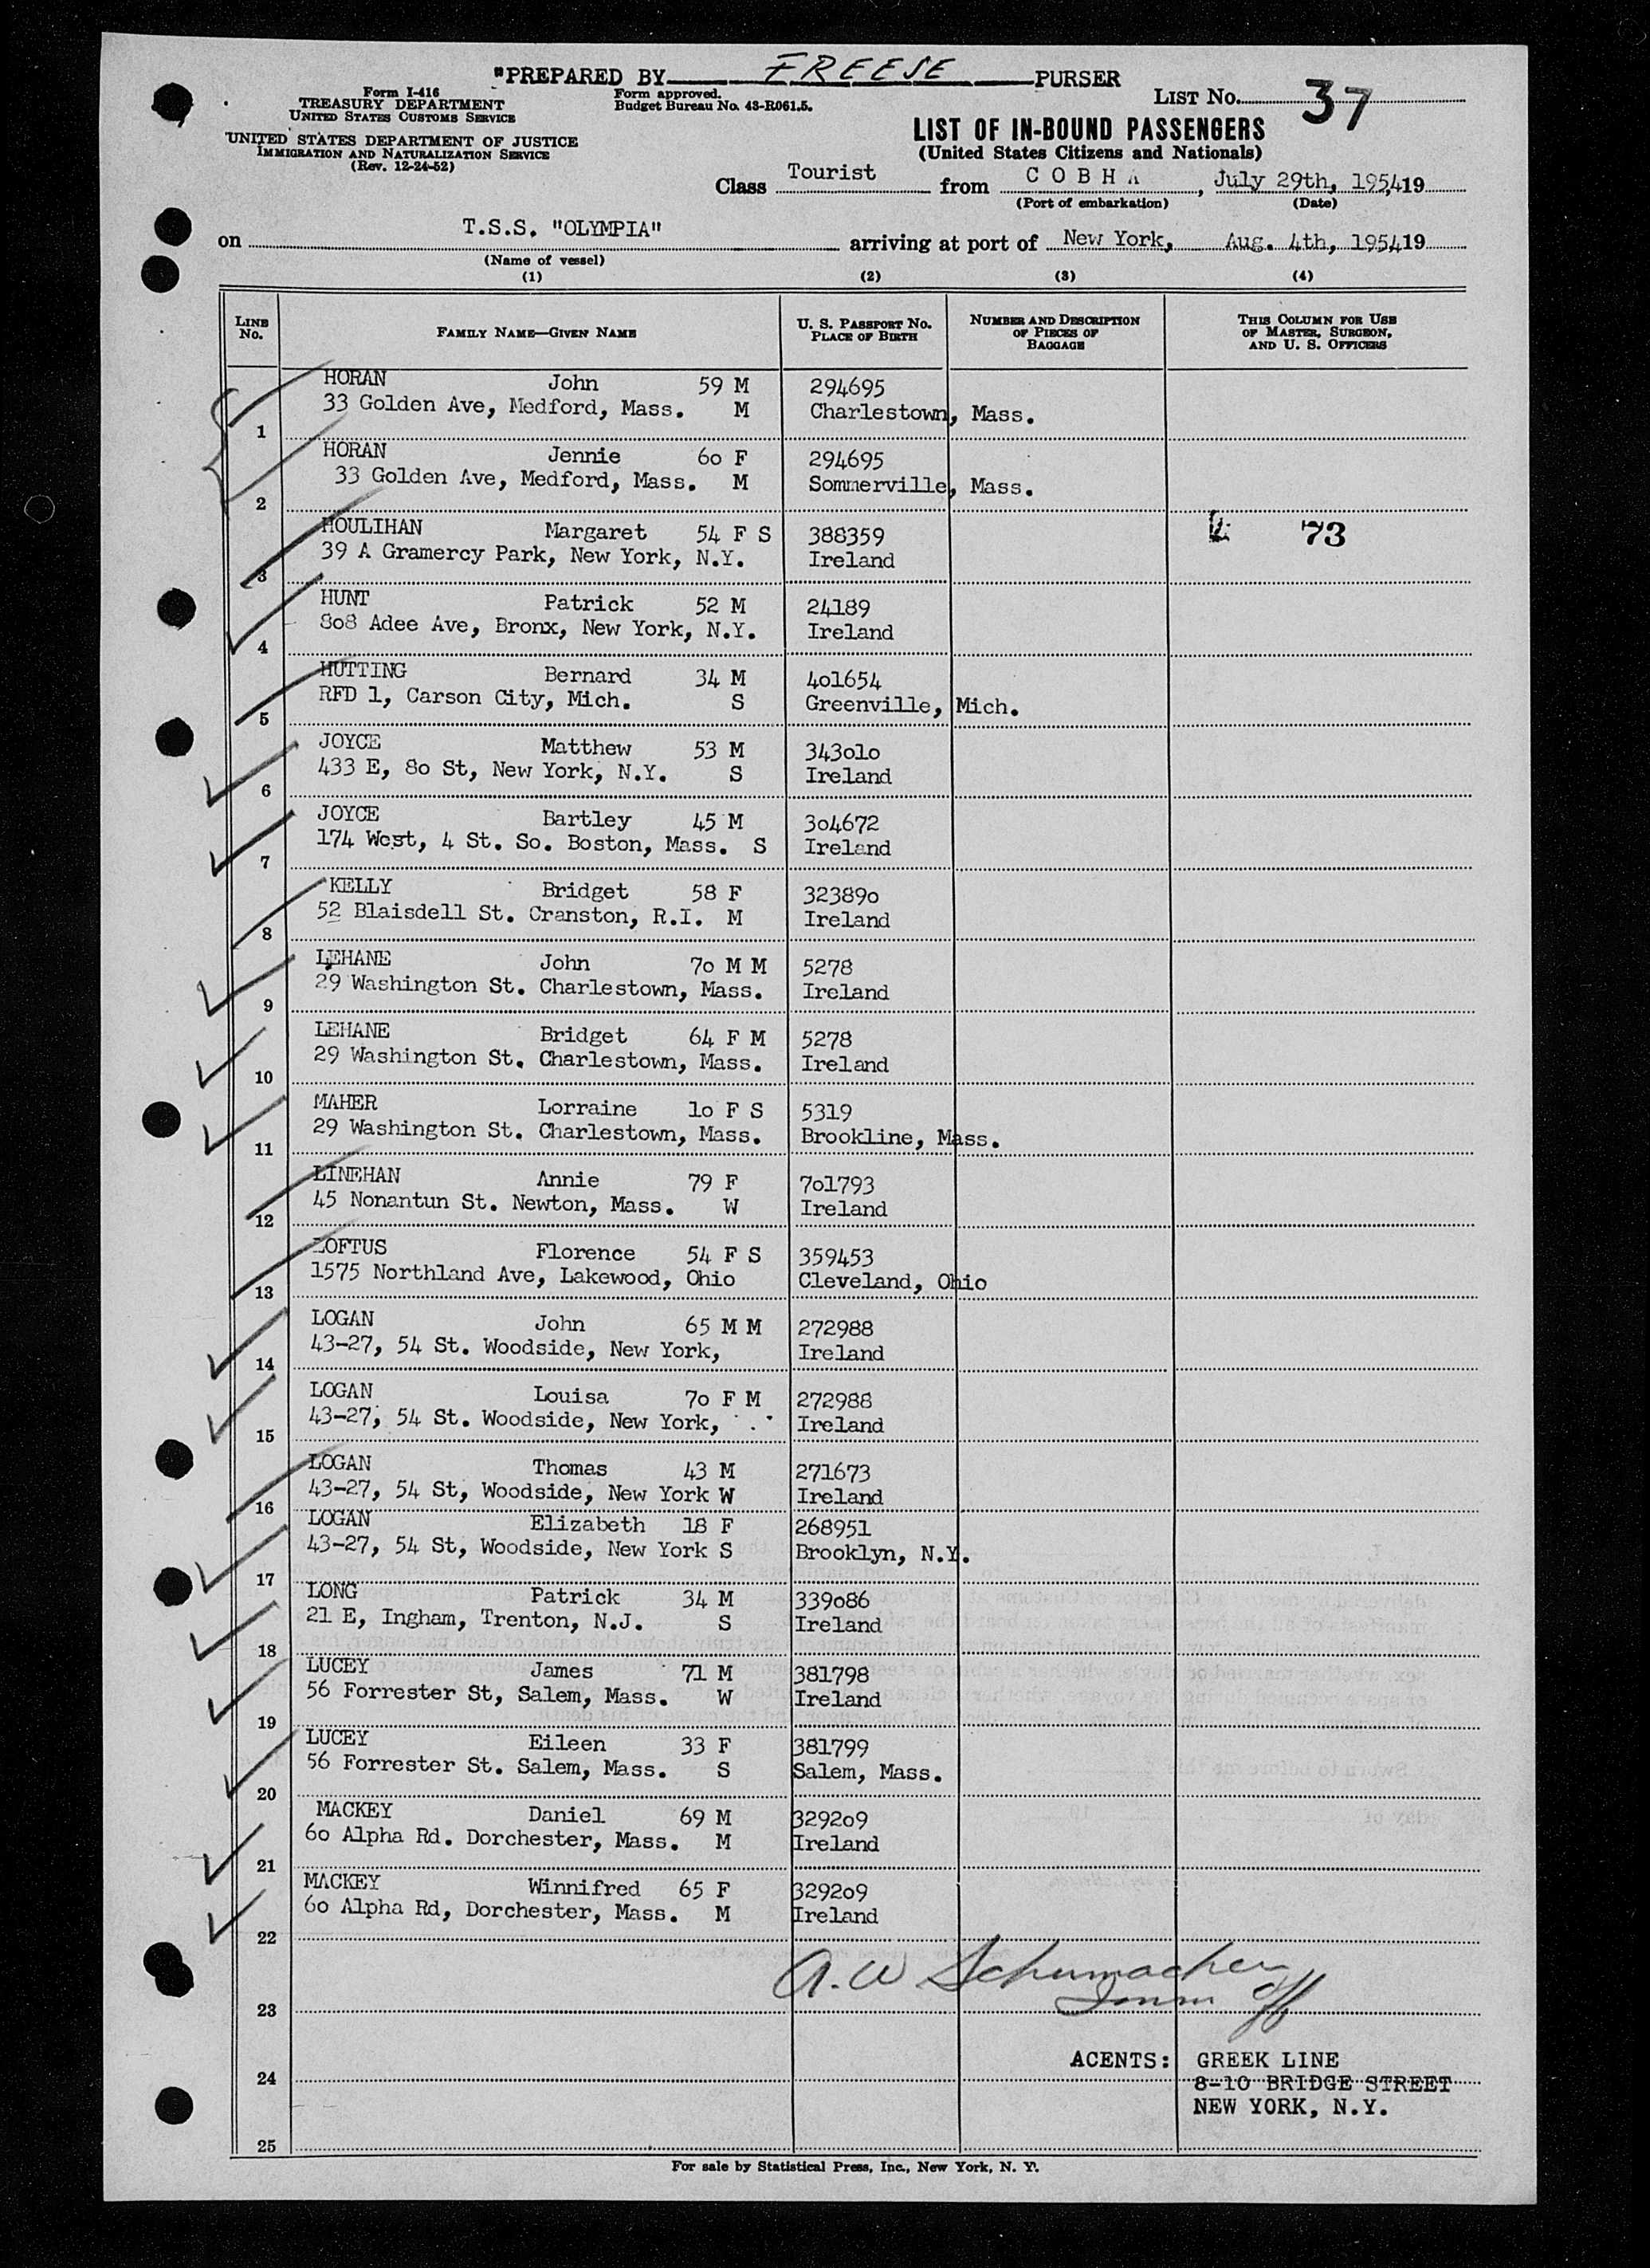 "PREPARED BY FREESE PURSER
Form I-416
TREASURY DEPARTMENT
UNITED STATES CUSTOMS SERVICE
UNITED STATES DEPARTMENT OF JUSTICE
IMMIGRATION AND NATURALIZATION SERVICE
(Rev. 12-24-52)
Form approved.
Budget Bureau No. 43-R061.5.
LIST No. 37
LIST OF IN-BOUND PASSENGERS
(United States Citizens and Nationals)
Class Tourist from COBHA, July 29th, 195419
(Port of embarkation) (Date)
on T.S.S. "OLYMPIA" arriving at port of New York, Aug. 4th, 195419
(Name of vessel)
(1) (2) (3) (4)
LINE No. FAMILY NAME—GIVEN NAME U. S. PASSPORT No. PLACE OF BIRTH NUMBER AND DESCRIPTION OF PIECES OF BAGGAGE THIS COLUMN FOR USE OF MASTER, SURGEON, AND U. S. OFFICERS
HORAN John 59 M 294695
33 Golden Ave, Medford, Mass. M Charlestown, Mass.
1
HORAN Jennie 60 F 294695
33 Golden Ave, Medford, Mass. M Sommerville, Mass.
2
HOULIHAN Margaret 54 F S 388359 73
39 A Gramercy Park, New York, N.Y. Ireland
3
HUNT Patrick 52 M 24189
808 Adee Ave, Bronx, New York, N.Y. Ireland
4
HUTTING Bernard 34 M 401654
RFD 1, Carson City, Mich. S Greenville, Mich.
5
JOYCE Matthew 53 M 343010
433 E, 80 St, New York, N.Y. S Ireland
6
JOYCE Bartley 45 M 304672
174 West, 4 St. So. Boston, Mass. S Ireland
7
KELLY Bridget 58 F 323890
52 Blaisdell St. Cranston, R.I. M Ireland
8
LEHANE John 70 M M 5278
29 Washington St. Charlestown, Mass. Ireland
9
LEHANE Bridget 64 F M 5278
29 Washington St. Charlestown, Mass. Ireland
10
MAHER Lorraine 10 F S 5319
29 Washington St. Charlestown, Mass. Brookline, Mass.
11
LINEHAN Annie 79 F 701793
45 Nonantun St. Newton, Mass. W Ireland
12
LOFTUS Florence 54 F S 359453
1575 Northland Ave, Lakewood, Ohio Cleveland, Ohio
13
LOGAN John 65 M M 272988
43-27, 54 St. Woodside, New York, Ireland
14
LOGAN Louisa 70 F M 272988
43-27, 54 St. Woodside, New York, Ireland
15
LOGAN Thomas 43 M 271673
43-27, 54 St, Woodside, New York W Ireland
16
LOGAN Elizabeth 18 F 268951
43-27, 54 St, Woodside, New York S Brooklyn, N.Y.
17
LONG Patrick 34 M 339086
21 E, Ingham, Trenton, N.J. S Ireland
18
LUCEY James 71 M 381798
56 Forrester St, Salem, Mass. W Ireland
19
LUCEY Eileen 33 F 381799
56 Forrester St. Salem, Mass. S Salem, Mass.
20
MACKEY Daniel 69 M 329209
60 Alpha Rd. Dorchester, Mass. M Ireland
21
MACKEY Winnifred 65 F 329209
60 Alpha Rd, Dorchester, Mass. M Ireland
22
A. W Schumacher
Imm Off
23
ACENTS: GREEK LINE
24
8-10 BRIDGE STREET
NEW YORK, N.Y.
25
For sale by Statistical Press, Inc., New York, N. Y.